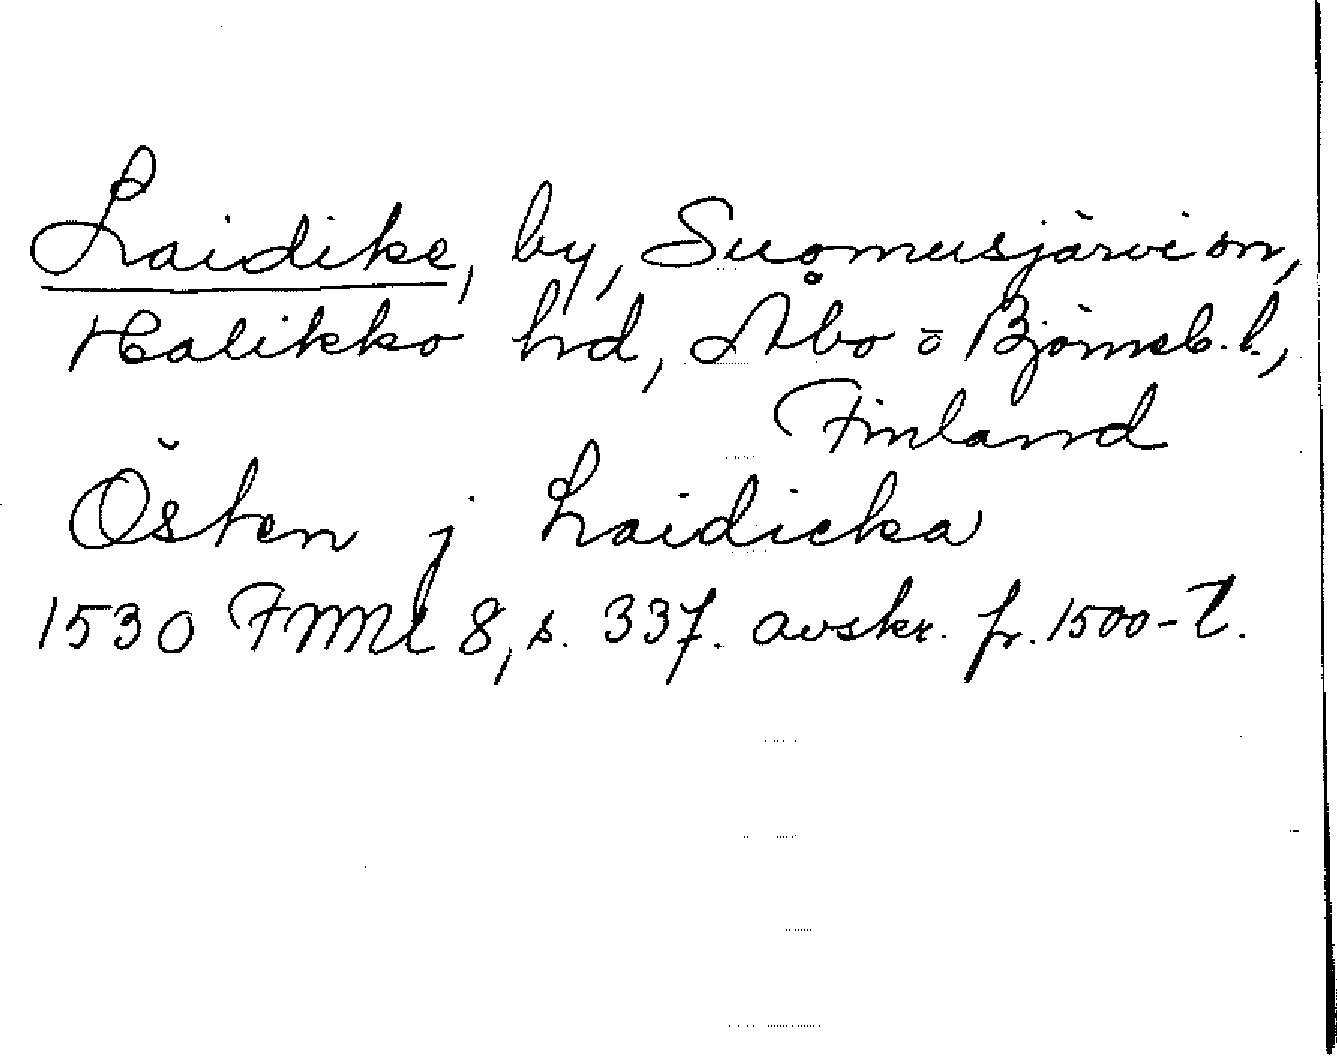 Laidike, by, Suomusjärvi sn,
Halikko hd, Åbo o Björneb. l.,
Finland
Östen j Laidicka
1530 FMU 8, s. 337. avskr. fr. 1500-t.